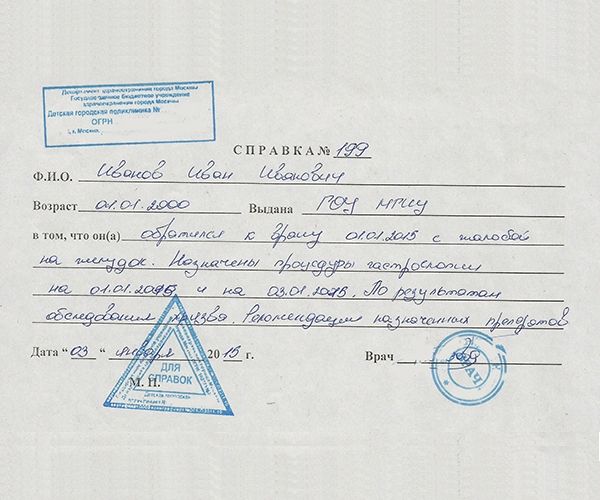 Департамент здравоохранения города Москвы
Государственное бюджетное учреждение
здравоохранения города Москвы
Детская городская поликлиника №
ОГРН
г. Москва
СПРАВКА № 199
Ф.И.О. Иванов Иван Иванович
Возраст 01.01.2000 Выдана ГОУ
в том, что он(а) обратился к врачу 01.01.2015 с жалобой
на желудок. Назначены процедуры гастроскопии
на 01.01.2015, и на 03.01.2015. По результатам
обследования язва. Рекомендации назначенных препаратов
Дата “03 “ января 2015 г. Врач
ДЛЯ
СПРАВОК
М. П.
ВРАЧ